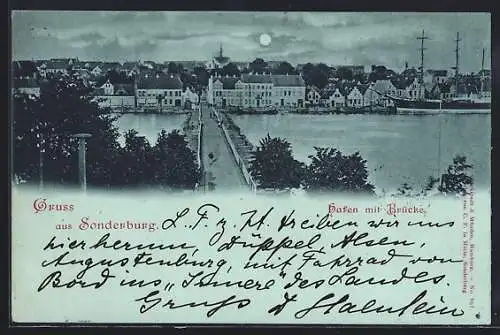 Gruss
aus Sonderburg.
Hafen mit Brücke.
L. F. z. Zt. treiben wir uns
hierherum, Düppel, Alsen,
Augustenburg, mit Fahrrad von
Bord ins "Innere" des Landes.
Gruß